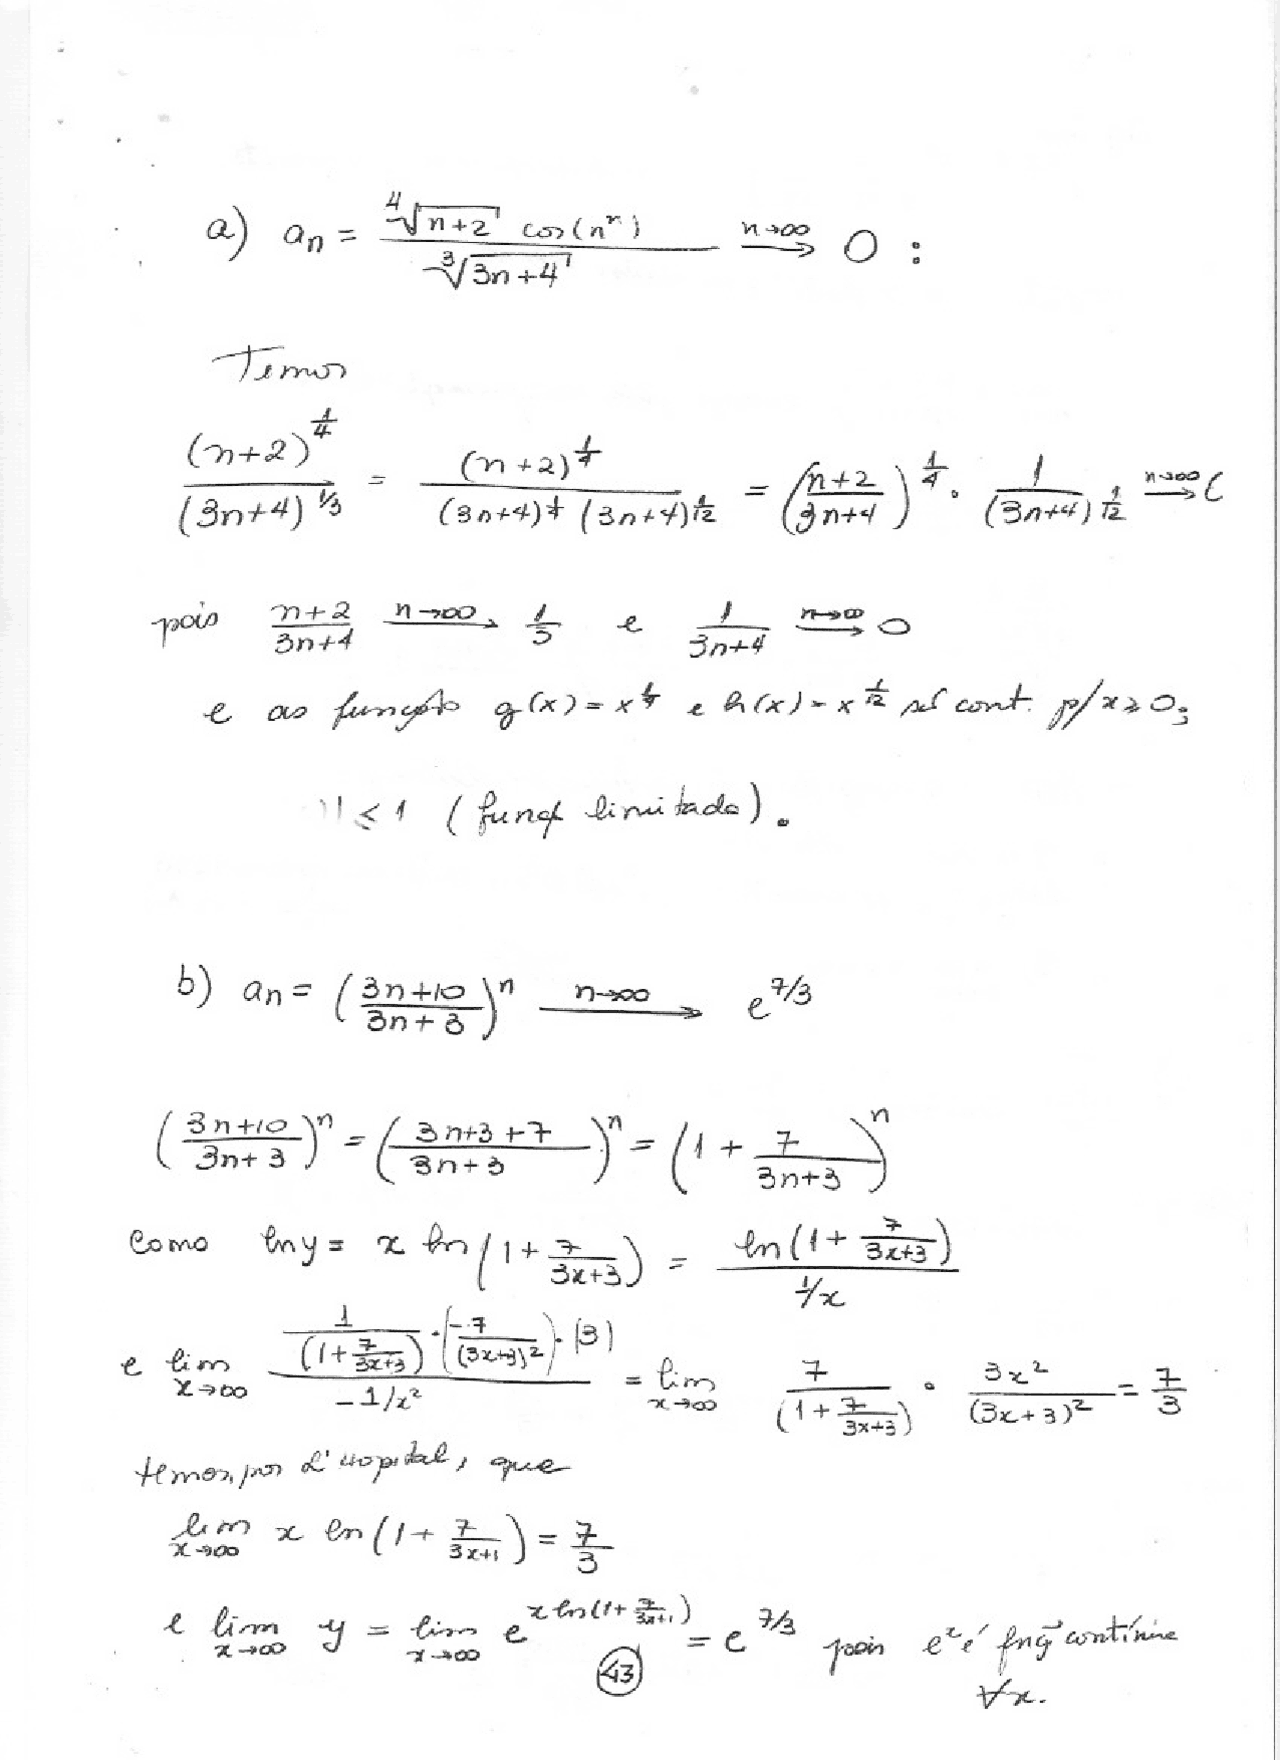 a) aₙ = ⁴√(n+2) cos(nⁿ) / ³√(3n+4) —n→∞→ 0 :
Temos
(n+2)^(1/4) / (3n+4)^(1/3) = (n+2)^(1/4) / (3n+4)^(1/4) (3n+4)^(1/12) = ((n+2)/(3n+4))^(1/4) · 1/(3n+4)^(1/12) —n→∞→
pois (n+2)/(3n+4) —n→∞→ 1/3 e 1/(3n+4) —n→∞→ 0
e as função g(x) = x^(1/4) e h(x) = x^(1/12) cont. p/ x ≥ 0;
| ≤ 1 (funç limitada).
b) aₙ = ((3n+10)/(3n+3))ⁿ —n→∞→ e^(7/3)
((3n+10)/(3n+3))ⁿ = ((3n+3+7)/(3n+3))ⁿ = (1 + 7/(3n+3))ⁿ
Como ln y = x ln(1 + 7/(3x+3)) = ln(1 + 7/(3x+3)) / (1/x)
e lim x→∞ [1/(1+7/(3x+3)) · (-7/(3x+3)²) · (3)] / (-1/x²) = lim x→∞ 7/(1+7/(3x+3)) · 3x²/(3x+3)² = 7/3
temos, por L'Hopital, que
lim x→∞ x ln(1 + 7/(3x+1)) = 7/3
e lim x→∞ y = lim x→∞ e^(x ln(1+7/(3x+1))) = e^(7/3) pois eˣ é fnç contínua
∀x.
43